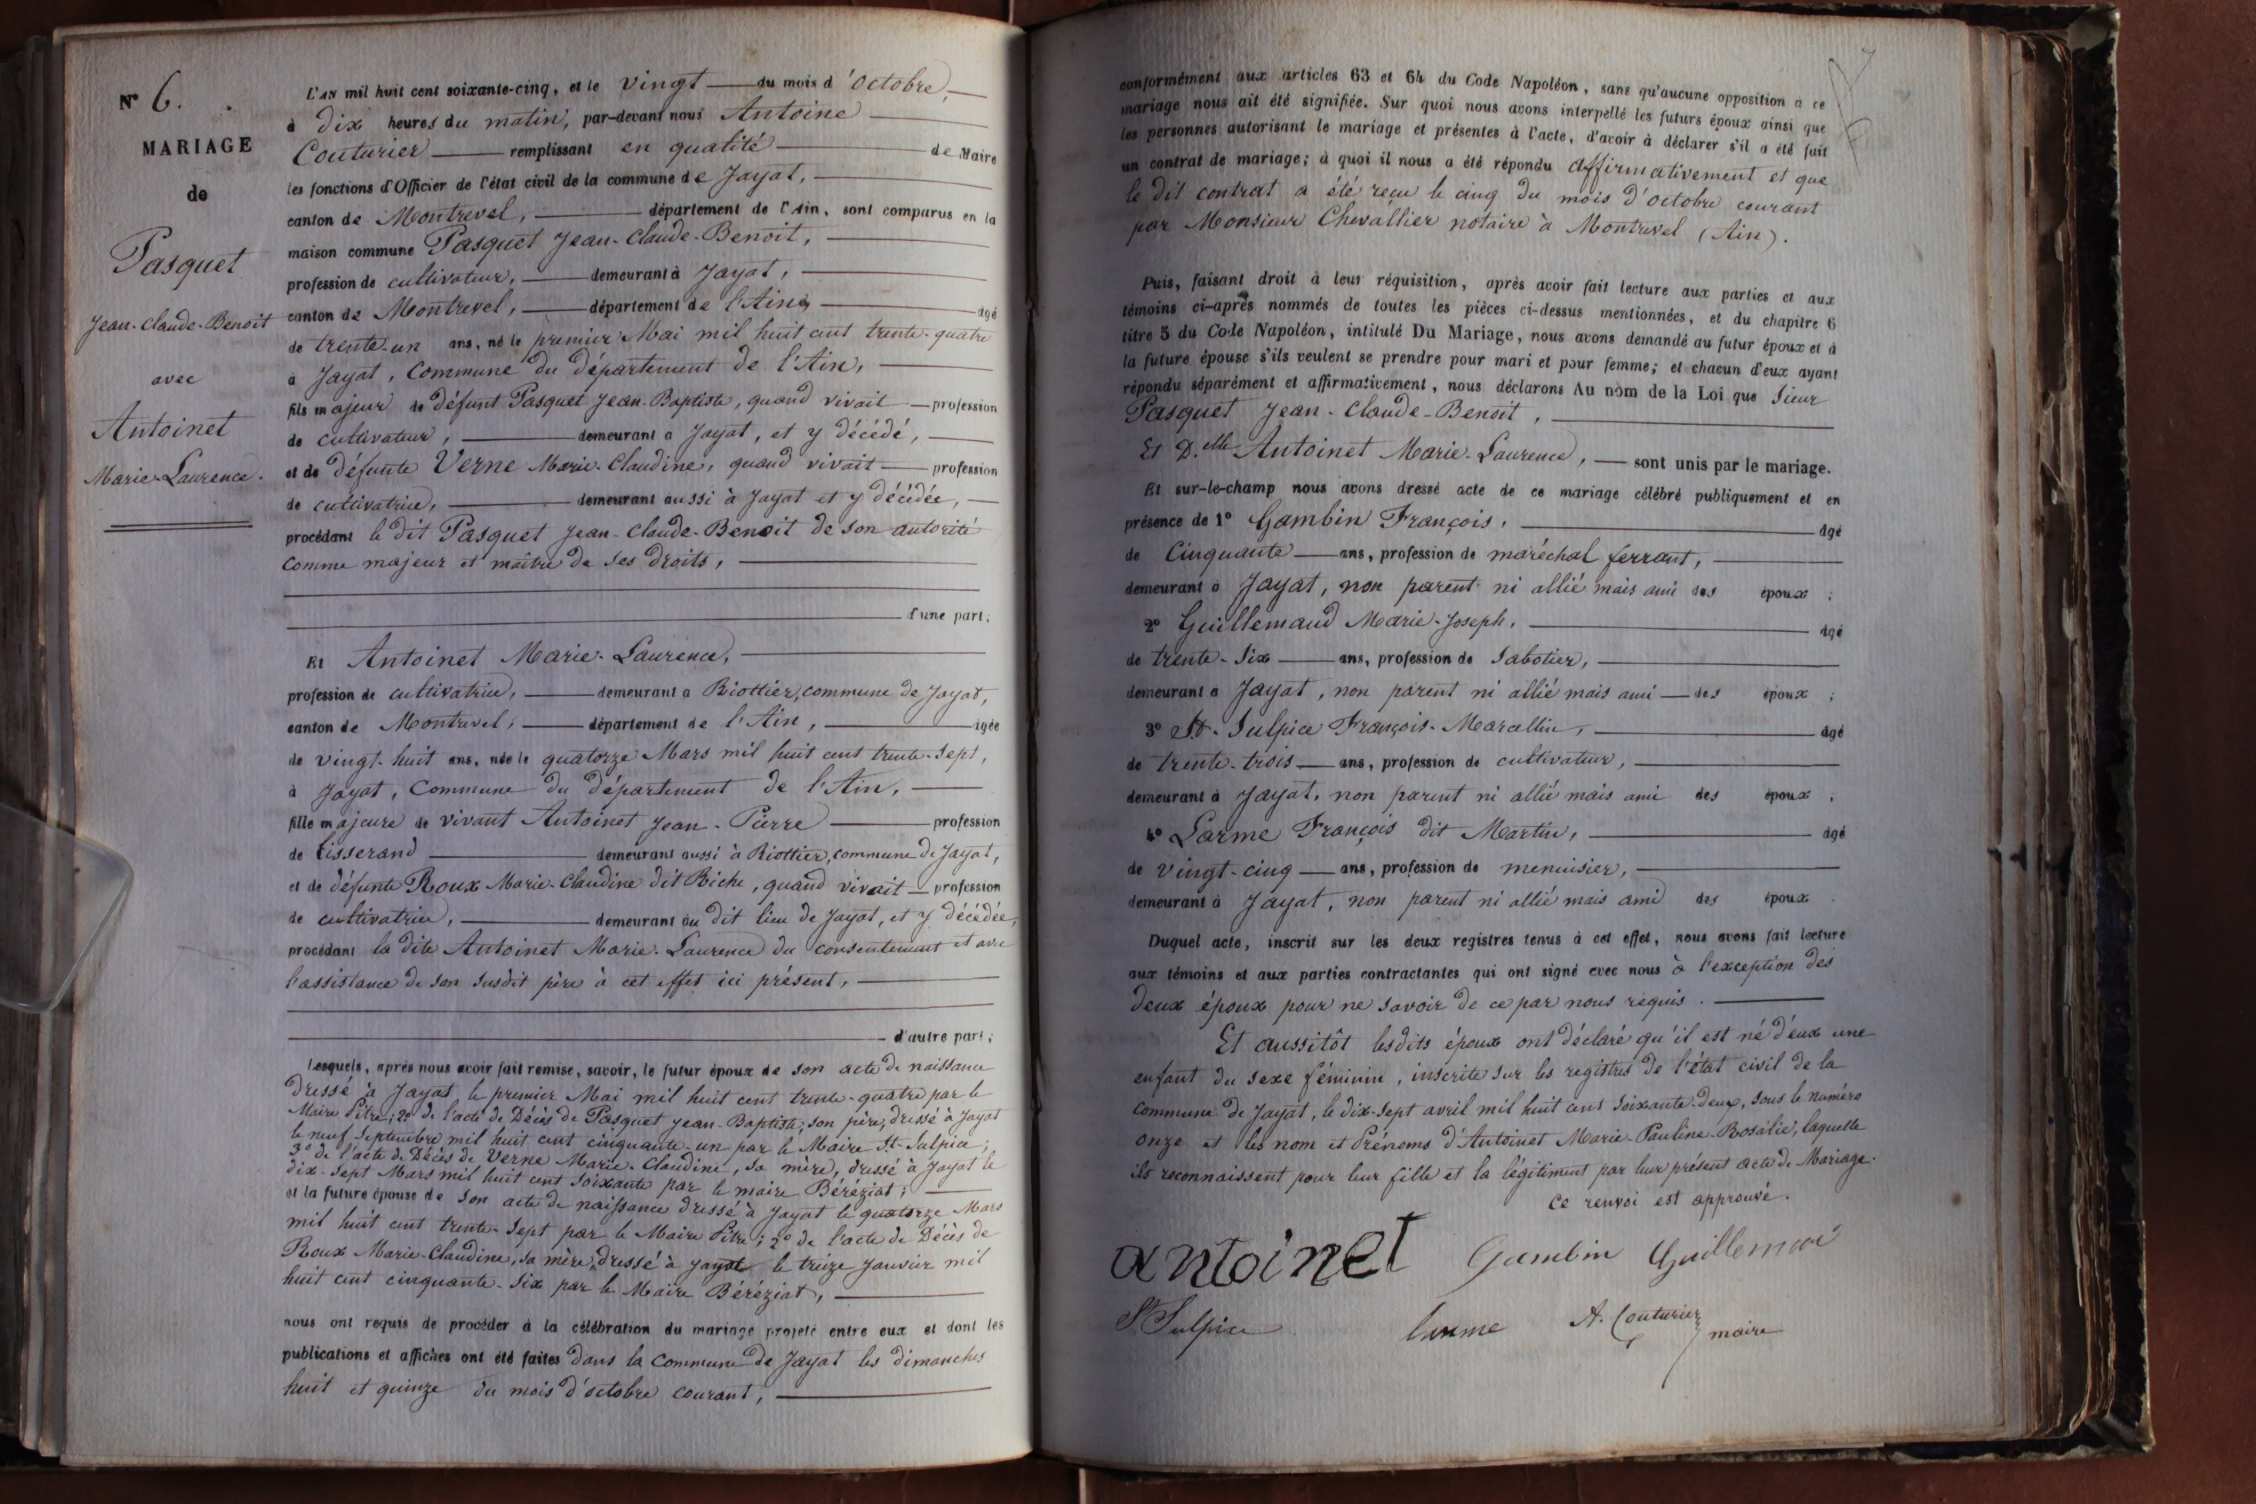 N° 6.
MARIAGE
de
Pasquet
Jean-Claude-Benoit
avec
Antoinet
Marie-Laurence.
L'AN mil huit cent soixante-cinq, et le vingt du mois d'octobre,
à dix heures du matin, par-devant nous Antoine
Couturier remplissant en qualité de Maire
les fonctions d'Officier de l'état civil de la commune de Jayat,
canton de Montrevel, département de l'Ain, sont comparus en la
maison commune Pasquet Jean-Claude-Benoit,
profession de cultivateur, demeurant à Jayat,
canton de Montrevel, département de l'Ain, âgé
de trente-un ans, né le premier Mai mil huit cent trente-quatre
à Jayat, Commune du département de l'Ain,
fils majeur de défunt Pasquet Jean-Baptiste, quand vivait profession
de cultivateur, demeurant à Jayat, et y décédé,
et de défunte Verne Marie-Claudine, quand vivait profession
de cultivatrice, demeurant aussi à Jayat et y décédée,
procédant le dit Pasquet Jean-Claude-Benoit de son autorité
comme majeur et maître de ses droits,
d'une part;
Et Antoinet Marie-Laurence,
profession de cultivatrice, demeurant à Riottier, commune de Jayat,
canton de Montrevel, département de l'Ain, âgée
de vingt-huit ans, née le quatorze Mars mil huit cent trente-sept,
à Jayat, Commune du département de l'Ain,
fille majeure de vivant Antoinet Jean-Pierre profession
de tisserand demeurant aussi à Riottier, commune de Jayat,
et de défunte Roux Marie-Claudine dit Riche, quand vivait profession
de cultivatrice, demeurant au dit lieu de Jayat, et y décédée,
procédant la dite Antoinet Marie-Laurence du consentement et avec
l'assistance de son susdit père à cet effet ici présent,
d'autre part;
Lesquels, après nous avoir fait remise, savoir, le futur époux de son acte de naissance
dressé à Jayat le premier Mai mil huit cent trente-quatre par le
Maire Pitre; 2° de l'acte de Décès de Pasquet Jean-Baptiste, son père, dressé à Jayat
le neuf Septembre mil huit cent cinquante-un par le Maire St-Sulpice;
3° de l'acte de Décès de Verne Marie-Claudine, sa mère, dressé à Jayat le
dix-sept Mars mil huit cent soixante par le maire Béréziat;
et la future épouse de son acte de naissance dressé à Jayat le quatorze Mars
mil huit cent trente-sept par le Maire Pitre; 2° de l'acte de Décès de
Roux Marie-Claudine, sa mère, dressé à Jayat le treize Janvier mil
huit cent cinquante-six par le Maire Béréziat,
nous ont requis de procéder à la célébration du mariage projeté entre eux et dont les
publications et affiches ont été faites dans la commune de Jayat les dimanches
huit et quinze du mois d'octobre courant,
conformément aux articles 63 et 64 du Code Napoléon, sans qu'aucune opposition a ce
mariage nous ait été signifiée. Sur quoi nous avons interpellé les futurs époux ainsi que
les personnes autorisant le mariage et présentes à l'acte, d'avoir à déclarer s'il a été fait
un contrat de mariage; à quoi il nous a été répondu affirmativement et que
le dit contrat a été reçu le cinq du mois d'octobre courant
par Monsieur Chevallier notaire à Montrevel (Ain).
Puis, faisant droit à leur réquisition, après avoir fait lecture aux parties et aux
témoins ci-après nommés de toutes les pièces ci-dessus mentionnées, et du chapitre 6
titre 5 du Code Napoléon, intitulé Du Mariage, nous avons demandé au futur époux et à
la future épouse s'ils veulent se prendre pour mari et pour femme; et chacun d'eux ayant
répondu séparément et affirmativement, nous déclarons Au nom de la Loi que Sieur
Pasquet Jean-Claude-Benoit,
Et D.elle Antoinet Marie-Laurence, sont unis par le mariage.
Et sur-le-champ nous avons dressé acte de ce mariage célébré publiquement et en
présence de 1° Gambin François, âgé
de Cinquante ans, profession de maréchal ferrant,
demeurant à Jayat, non parent ni allié mais ami des époux;
2° Guillemaud Marie-Joseph, âgé
de trente-six ans, profession de sabotier,
demeurant à Jayat, non parent ni allié mais ami des époux;
3° St-Sulpice François-Marcellin, âgé
de trente-trois ans, profession de cultivateur,
demeurant à Jayat, non parent ni allié mais ami des époux;
4° Larme François dit Martin, âgé
de vingt-cinq ans, profession de menuisier,
demeurant à Jayat, non parent ni allié mais ami des époux
Duquel acte, inscrit sur les deux registres tenus à cet effet, nous avons fait lecture
aux témoins et aux parties contractantes qui ont signé avec nous à l'exception des
deux époux pour ne savoir de ce par nous requis.
Et aussitôt lesdits époux ont déclaré qu'il est né d'eux une
enfant du sexe féminin, inscrite sur les registres de l'état civil de la
commune de Jayat, le dix-sept avril mil huit cent soixante-deux, sous le numéro
onze et les nom et Prénoms d'Antoinet Marie-Pauline-Rosalie, laquelle
ils reconnaissent pour leur fille et la légitiment par leur présent acte de Mariage.
ce renvoi est approuvé.
antoinet Gambin Guillemaud
St Sulpice larme A. Couturier maire